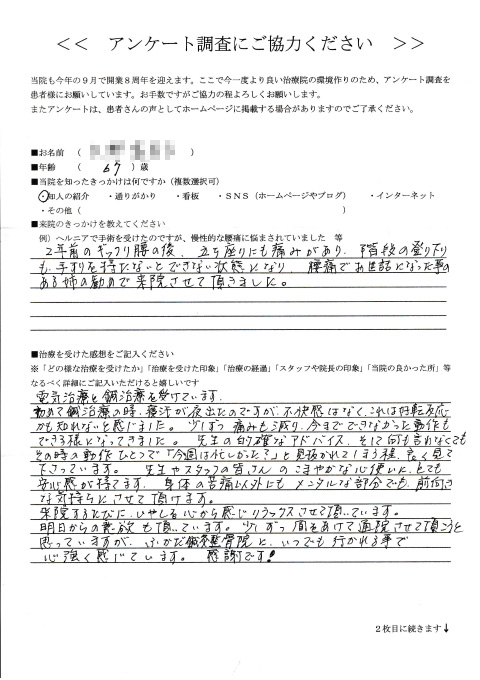 << アンケート調査にご協力ください >>
当院も今年の９月で開業８周年を迎えます。ここで今一度より良い治療院の環境作りのため、アンケート調査を
患者様にお願いしています。お手数ですがご協力の程よろしくお願いします。
またアンケートは、患者さんの声としてホームページに掲載する場合がありますのでご了承ください。
■お名前 （ ）
■年齢 （ 67 ）歳
■当院を知ったきっかけは何ですか（複数選択可）
・知人の紹介 ・通りがかり ・看板 ・ＳＮＳ（ホームページやブログ） ・インターネット
・その他（ ）
■来院のきっかけを教えてください
例）ヘルニアで手術を受けたのですが、慢性的な腰痛に悩まされていました 等
２年前のギックリ腰の後、立ち座りにも痛みがあり、階段の登り下り
も、手すりを持たないとできない状態になり、腰痛でお世話になった事の
ある姉の勧めで来院させて頂きました。
■治療を受けた感想をご記入ください
※「どの様な治療を受けたか」「治療を受けた印象」「治療の経過」「スタッフや院長の印象」「当院の良かった所」等
なるべく詳細にご記入いただけると嬉しいです
電気治療と鍼治療を受けています。
初めて鍼治療の時、寝汗が夜出たのですが、不快感はなく、これは好転反応
かも知れないと感じました。少しずつ痛みも減り、今までできなかった動作も
できる様になってきました。先生の的確なアドバイス、そして何も言わなくても
その時の動作ひとつで「今週は忙しかった？」と見抜かれてしまう程、良く見て
下さっています。先生やスタッフの皆さんのこまやかな心使いに、とても
安心感が持てます。身体の苦痛以外にもメンタルな部分でも、前向き
な気持ちにさせて頂けます。
来院するたびに、いやしを心から感じリラックスさせて頂いています。
明日からの意欲も頂いています。少しずつ間をあけて通院させて頂こうと
思っていますが、ふかだ鍼灸整骨院に、いつでも行かれる事で
心強く感じています。感謝です！
２枚目に続きます↓